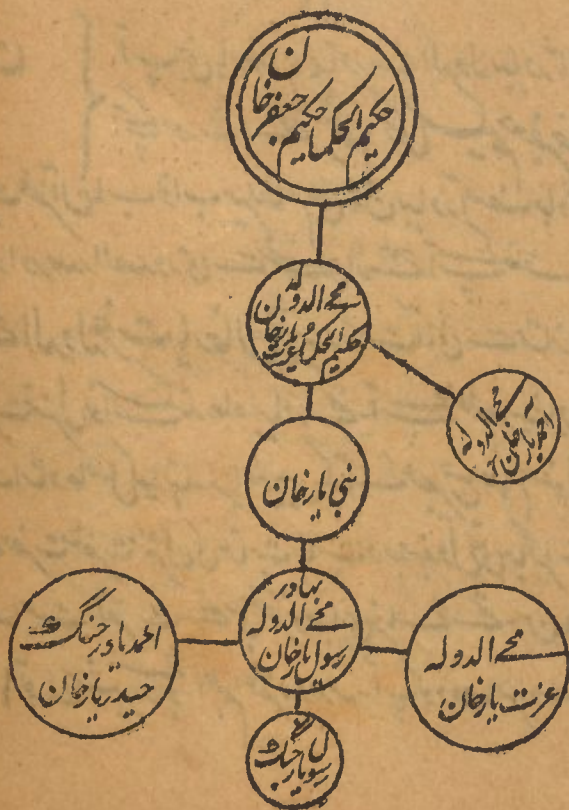 حکیم الحکما حکیم جعفر خان
محی الدولہ
حکیم الحکما عزت یار خان
محی الدولہ
احمد یار خان
نبی یار خان
بہادر
محی الدولہ
رسول یار خان
احمد یاور جنگ
حیدر یار خان
محی الدولہ
عزت یار خان
رسول یار جنگ